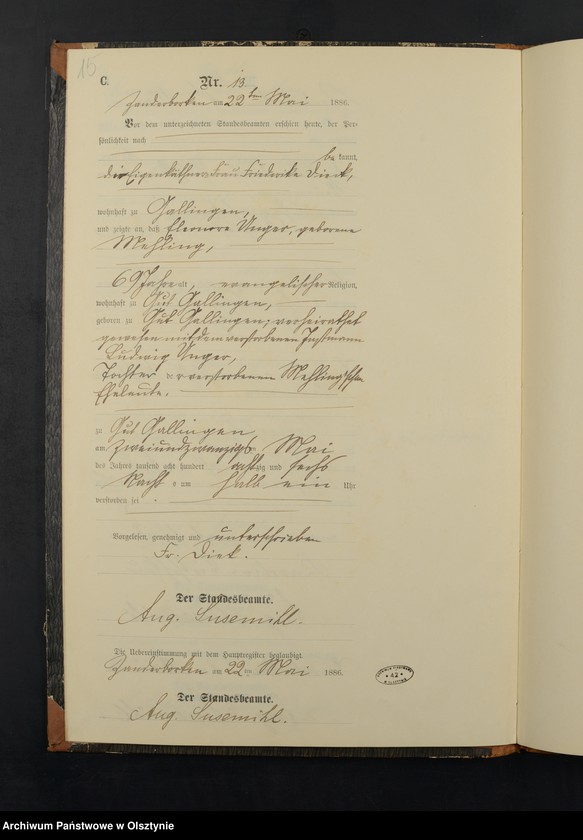 15
C.
Nr. 13.
Zanderborken am 22ten Mai 1886.
Vor dem unterzeichneten Standesbeamten erschien heute, der Per-
sönlichkeit nach
be kannt,
die Eigenkäthner Frau Friederike Dieck,
wohnhaft zu Gallingen,
und zeigte an, daß Eleonore Unger, geborene
Mehling,
69 Jahre alt, evangelischer Religion,
wohnhaft zu Gut Gallingen,
geboren zu Gut Gallingen; verheirathet
gewesen mit dem verstorbenen Instmann
Ludwig Unger,
Tochter der verstorbenen Mehling'schen
Eheleute.
zu Gut Gallingen
am zweiundzwanzigsten Mai
des Jahres tausend acht hundert achtzig und sechs
Nachts um halb ein Uhr
verstorben sei
Vorgelesen, genehmigt und unterschrieben
Fr. Diek.
Der Standesbeamte.
Aug. Susemihl.
Die Uebereinstimmung mit dem Hauptregister beglaubigt.
Zanderborken am 22ten Mai 1886.
Der Standesbeamte.
Aug. Susemihl.
* 42 *
Archiwum Państwowe w Olsztynie